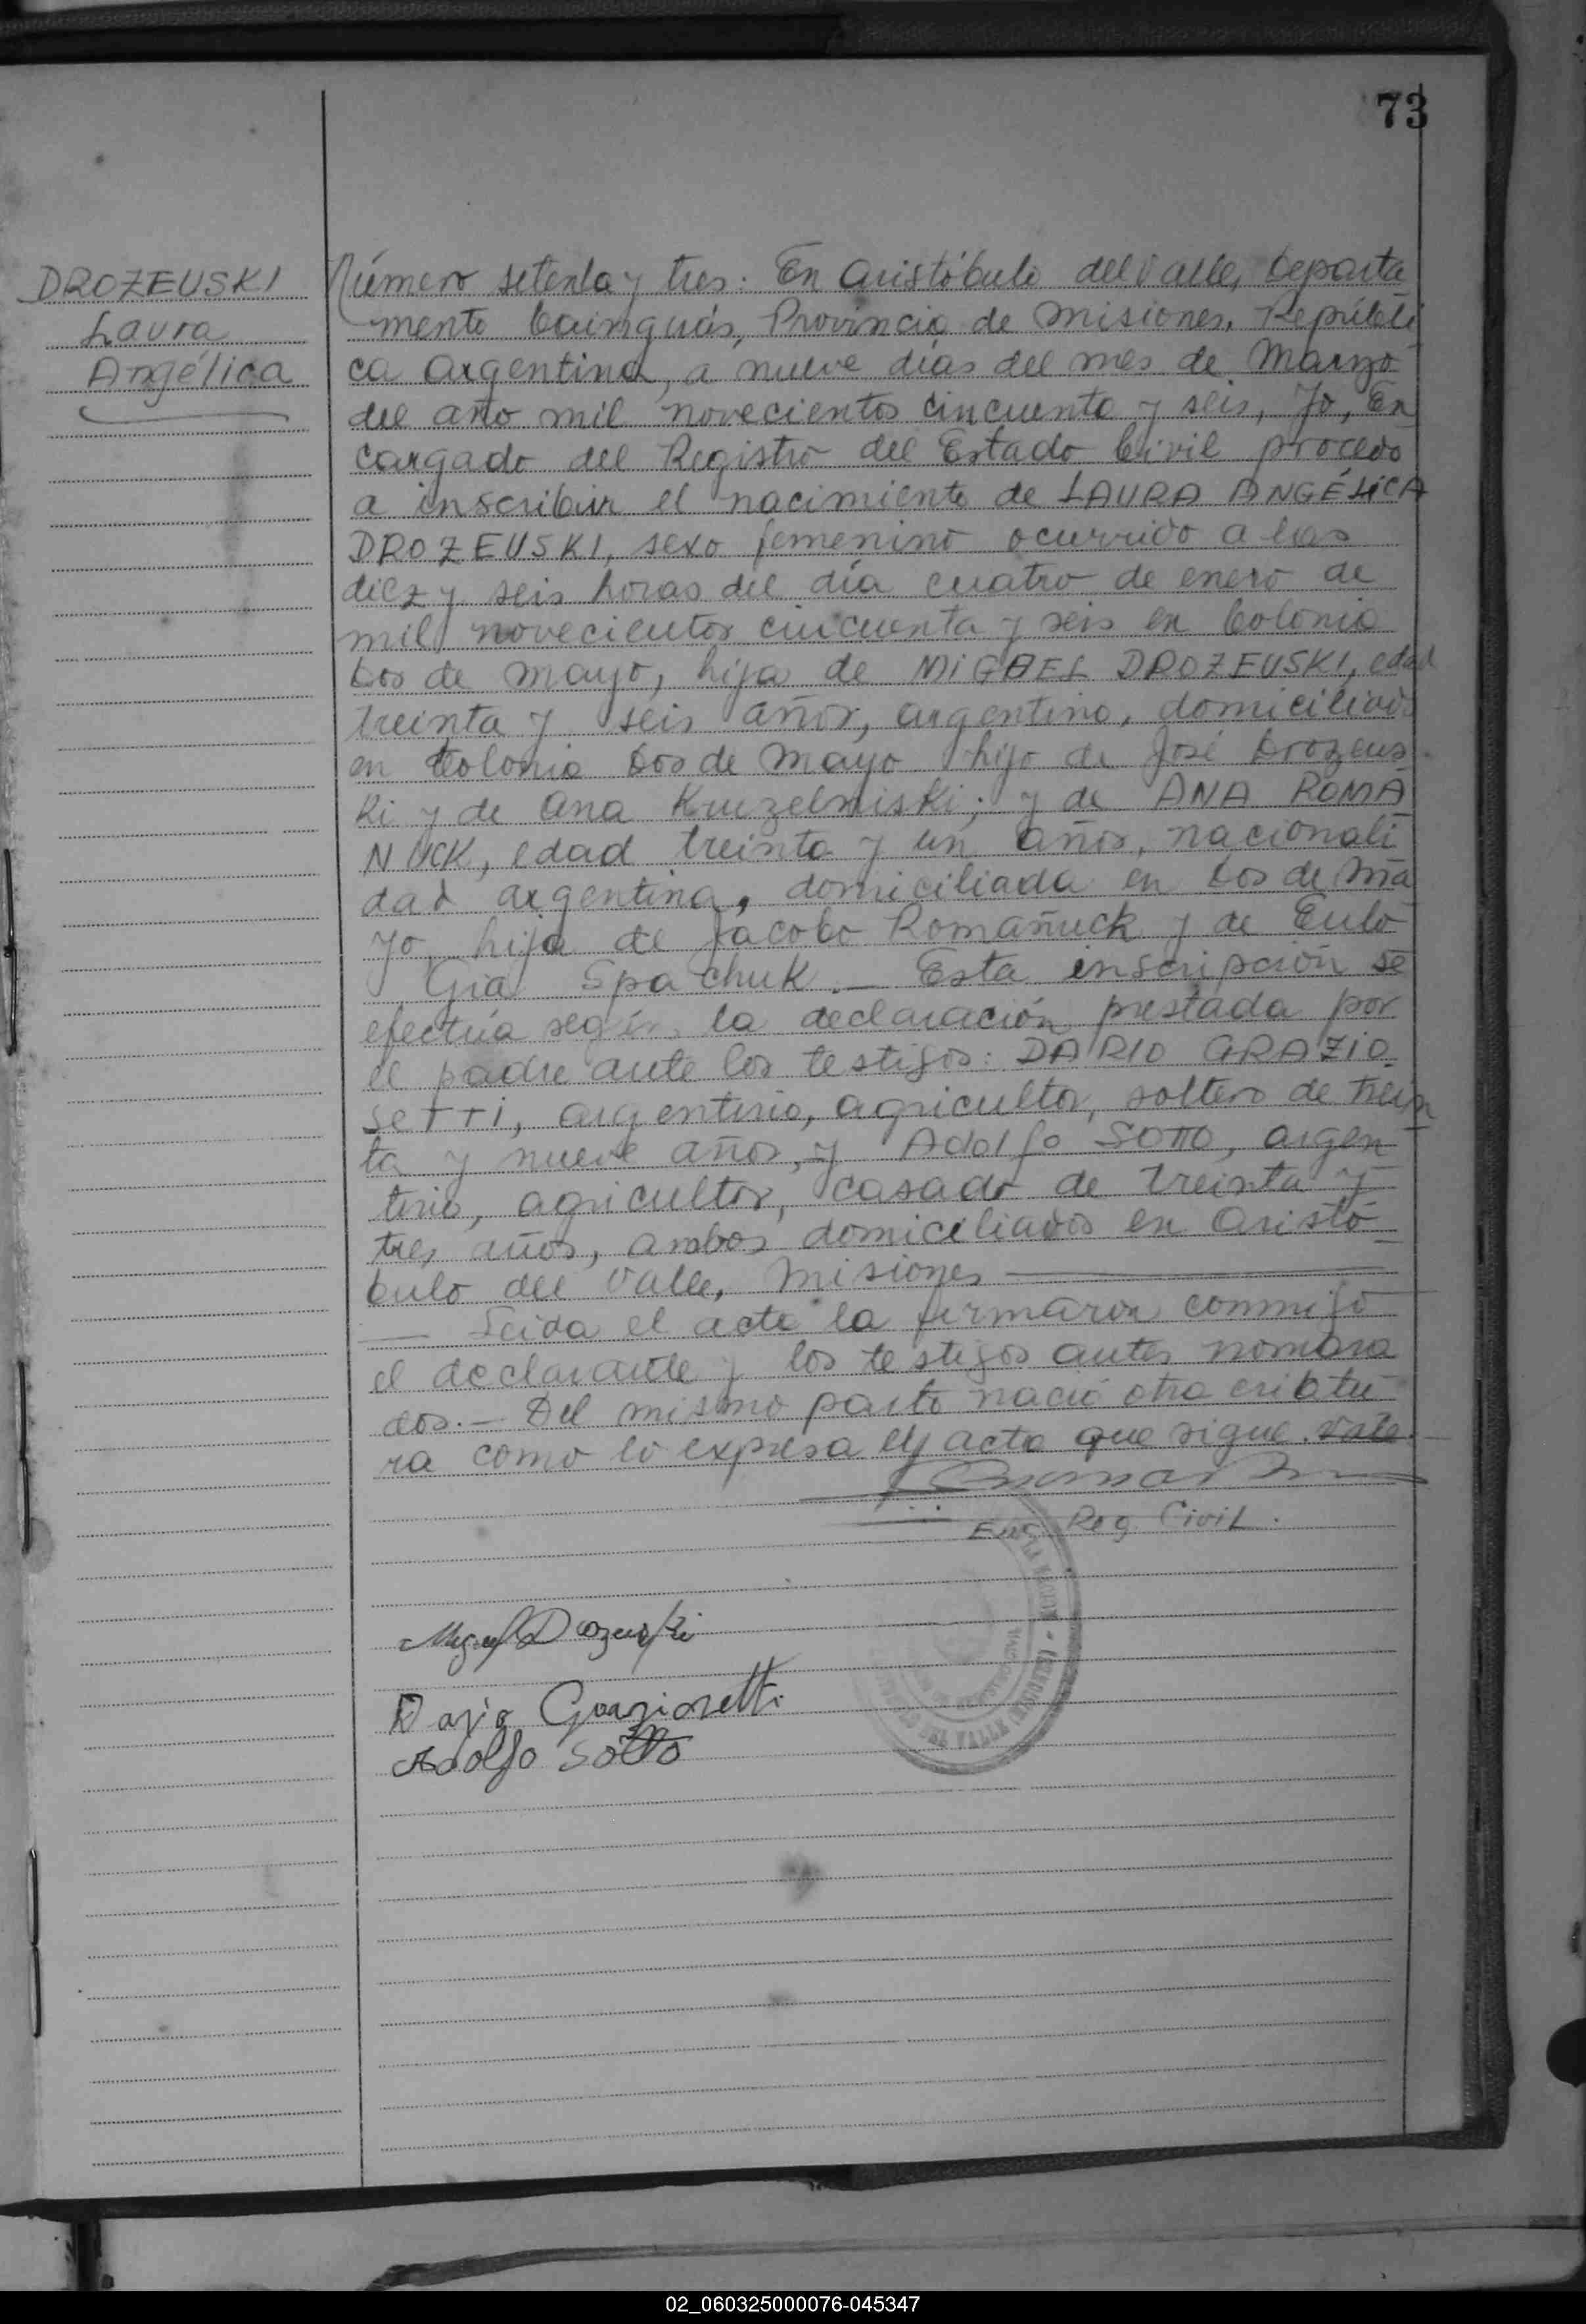 73
DROZEUSKI
Laura
Angélica
Número setenta y tres. En Aristóbulo del Valle, Departa
mento Cainguás, Provincia de Misiones, Repúbli
ca Argentina, a nueve días del mes de Marzo
del año mil novecientos cincuenta y seis, Yo, En
cargado del Registro del Estado Civil procedo
a inscribir el nacimiento de LAURA ANGÉLICA
DROZEUSKI, sexo femenino ocurrido a las
diez y seis horas del día cuatro de enero de
mil novecientos cincuenta y seis en Colonia
Dos de Mayo, hija de MIGUEL DROZEUSKI, edad
treinta y seis años, argentino, domiciliado
en Colonia Dos de Mayo hijo de José Drozeus
ki y de Ana Kruzelniski; y de ANA ROMA
NUCK, edad treinta y un años, nacionali
dad argentina, domiciliada en Dos de Ma
yo, hija de Jacobo Romañuck y de Eulo
Gia Spachuk.— Esta inscripción se
efectúa según la declaración prestada por
el padre ante los testigos: DARIO GRAZIO
SETTI, argentino, agricultor, soltero de trein
ta y nueve años, y Adolfo SOTTO, argen
tino, agricultor, casado de treinta y
tres años, ambos domiciliados en Aristó
bulo del Valle, Misiones
— Leida el acta la firmaron conmigo
el declarante y los testigos antes nombra
dos.— Del mismo parto nació otra criatu
ra como lo expresa el acta que sigue. Vale.
Enc. Reg. Civil.
Miguel Drozeuski
Dario Graziosetti
Adolfo Sotto
DEL VALLE (MISIONES)
02_060325000076-045347